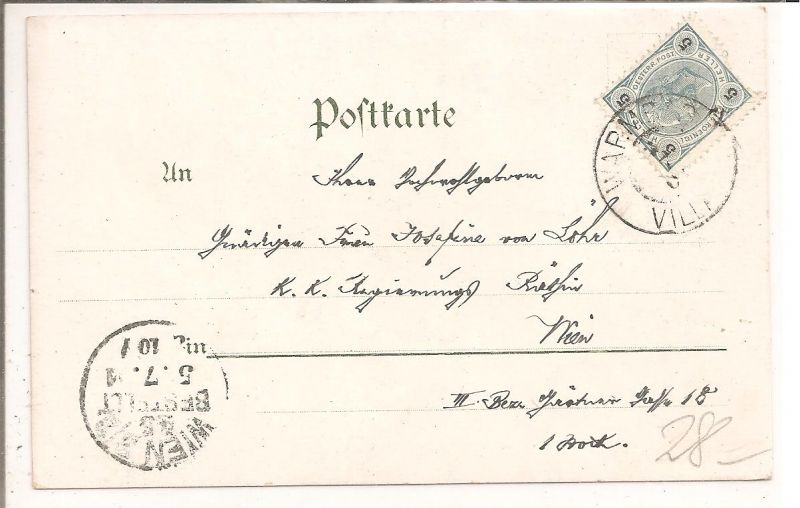 Postkarte
An
Ihrer Hochwohlgeboren
Gnädigen Frau Josefine von Löhr
K. K. Regierungs Räthin
Wien
in
III. Bez. Gärtner Gasse 18
1 Stock.
28-
5 HELLER 5
OESTERR. POST
VILL
WIEN
BESTELLT
5.7.